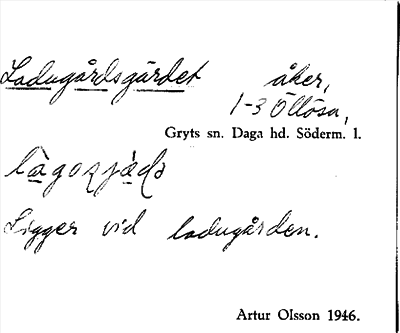 Ladugårdsgärdet åker,
1-3 Öllösa,
Gryts sn. Daga hd. Söderm. l.
Ligger vid ladugården.
Artur Olsson 1946.